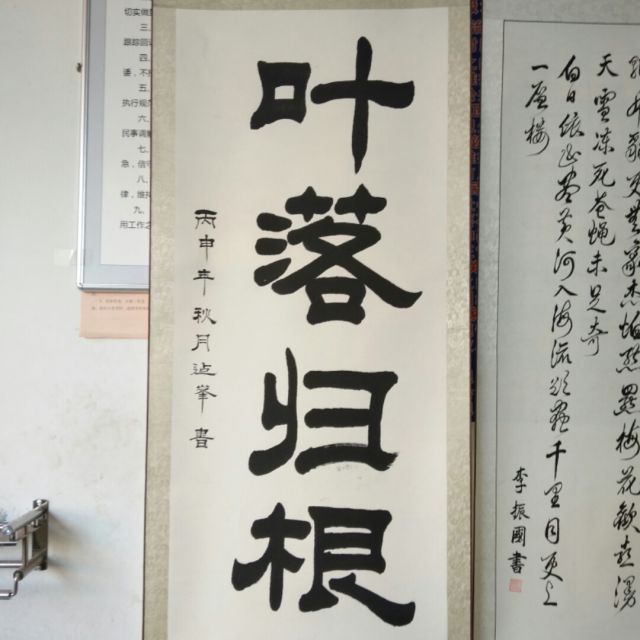 切实做
三
跟踪回
四、
谨，不
五、
执行规
六、
民事调解
七、
急，信守
八、
律，维护
九、
用工作之
叶落归根
丙申年秋月峯書
更無豪杰怕熊羆梅花歡喜漫
天雪凍死蒼蠅未足奇
白日依山盡黄河入海流欲窮千里目更上
一層樓
李振國書